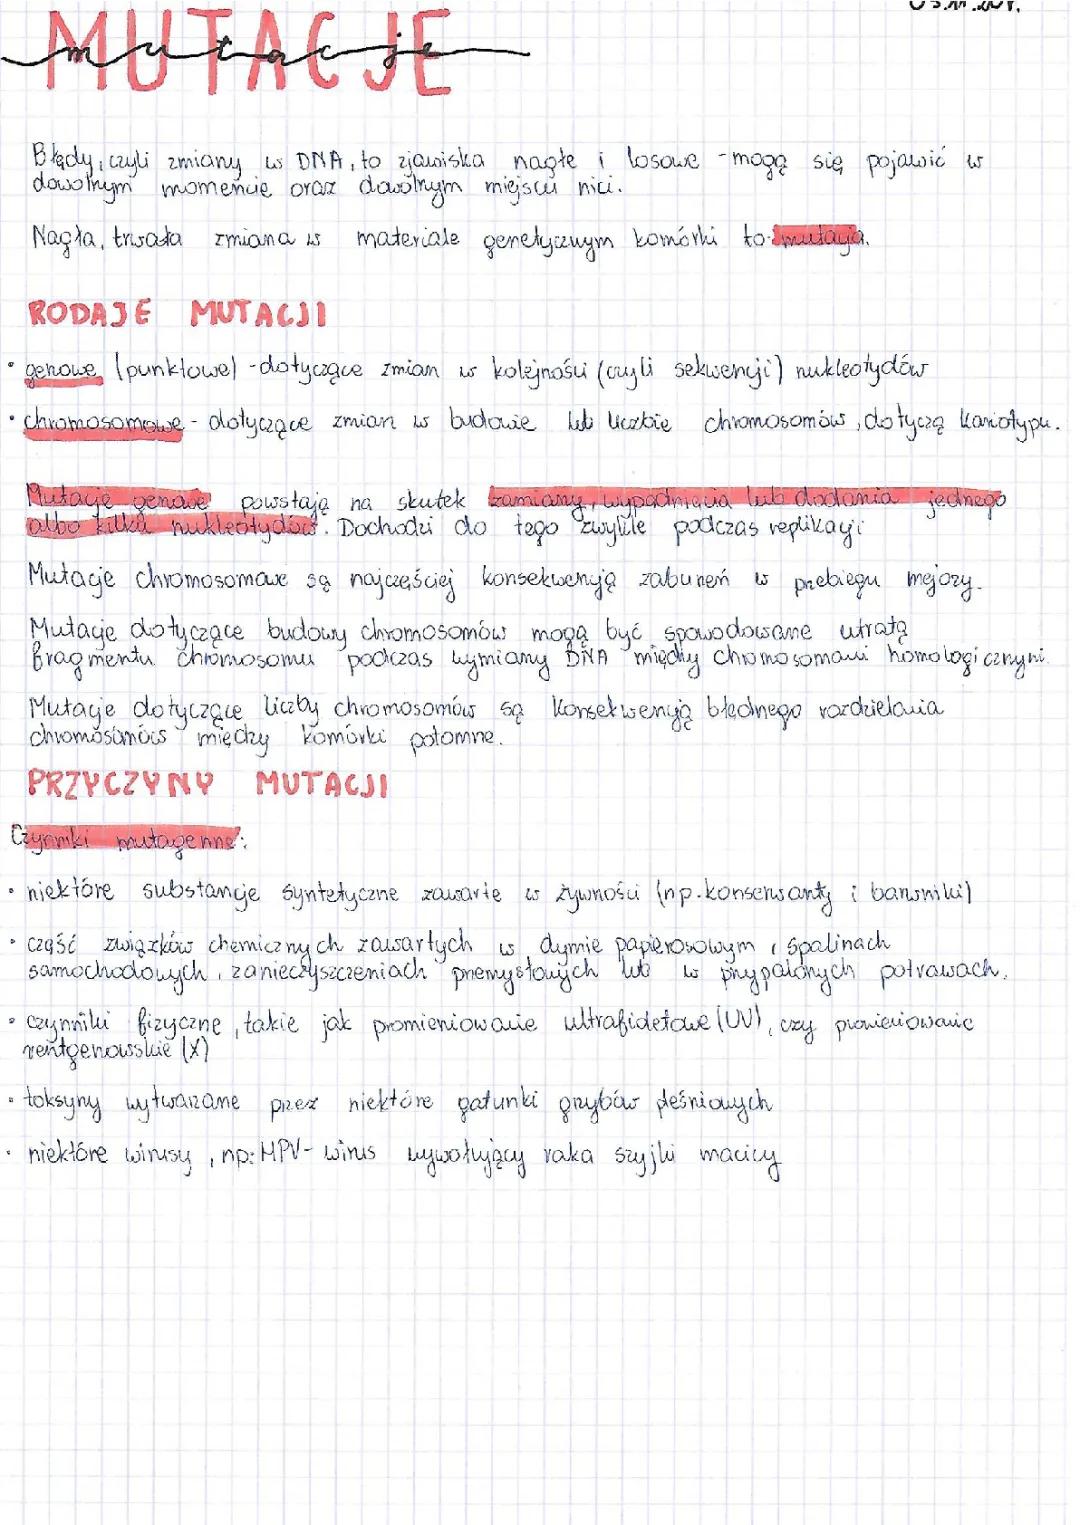 MUTACJE
mutacje
Błędy, czyli zmiany w DNA, to zjawiska nagłe i losowe - mogą się pojawić w
dowolnym momencie oraz dowolnym miejscu nici.
Nagła, trwała zmiana w materiale genetycznym komórki to mutacja.
RODAJE MUTACJI
• genowe (punktowe) - dotyczące zmian w kolejności (czyli sekwencji) nukleotydów
• chromosomowe - dotyczące zmian w budowie lub liczbie chromosomów, dotyczą kariotypu.
Mutacje genowe powstają na skutek zamiany, wypadnięcia lub dodania jednego
albo kilku nukleotydów. Dochodzi do tego zwykle podczas replikacji
Mutacje chromosomowe są najczęściej konsekwencją zaburzeń w przebiegu mejozy.
Mutacje dotyczące budowy chromosomów mogą być spowodowane utratą
fragmentu chromosomu podczas wymiany DNA między chromosomami homologicznymi.
Mutacje dotyczące liczby chromosomów są konsekwencją błędnego rozdzielania
chromosomów między komórki potomne.
PRZYCZYNY MUTACJI
Czynniki mutagenne:
• niektóre substancje syntetyczne zawarte w żywności (np. konserwanty i barwniki)
• część związków chemicznych zawartych w dymie papierosowym, spalinach
samochodowych, zanieczyszczeniach przemysłowych lub w przypalonych potrawach.
• czynniki fizyczne, takie jak promieniowanie ultrafioletowe (UV), czy promieniowanie
rentgenowskie (X)
• toksyny wytwarzane przez niektóre gatunki grzybów pleśniowych
• niektóre wirusy, np: HPV- wirus wywołujący raka szyjki macicy